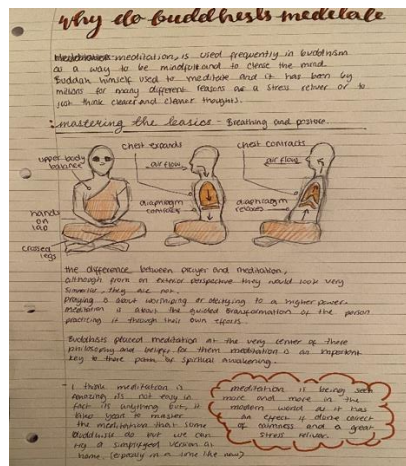 why do buddhists meditate
meditation, is used frequently in buddhism
as a way to be mindful and to clense the mind.
Buddah himself used to meditate and it has been by
millions for many different reasons as a stress reliver or to
just think clearer and cleaner thoughts.
mastering the basics - Breathing and posture.
upper body balance
hands on lap
crossed legs
chest expands
air flow
diaphragm contracts
chest contracts
air flow
diaphragm relaxes
the difference between prayer and meditation,
although from an exterior perspective they would look very
simerlar, they are not.
praying is about worshiping or to a higher power.
meditation is about the guided transformation of the person
practicing it through their own efforts
Buddhists placed meditation at the very center of there
philosophy and for them meditation is an important
key to there path of spiritual awakening.
I think meditation is
amazing its not easy in
fact its anything but, it
years to master
the meditation that some
Buddhists do but we can
try a simplified version at
home. (espically in a time like now)
meditation is being seen
more and more in the
modern world as it has
an effect if done correct
of calmness and a great
stress reliver.